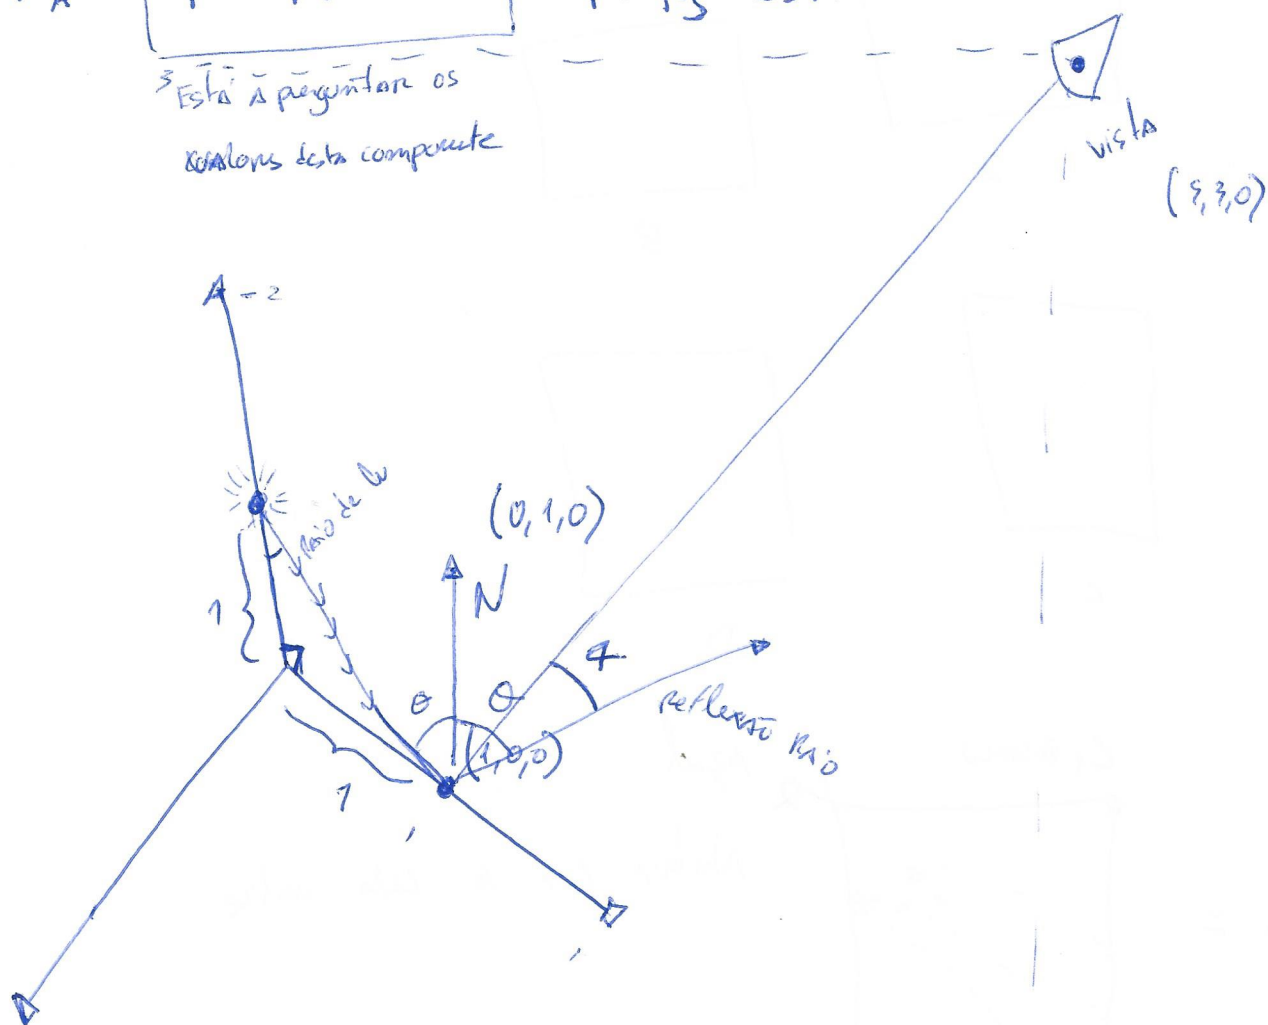 Está A perguntar os
valores desta componente
vista
(5,3,0)
2
Raio de luz
(0,1,0)
1
N
θ
θ
φ
(1,0,0)
Reflexão RAio
1